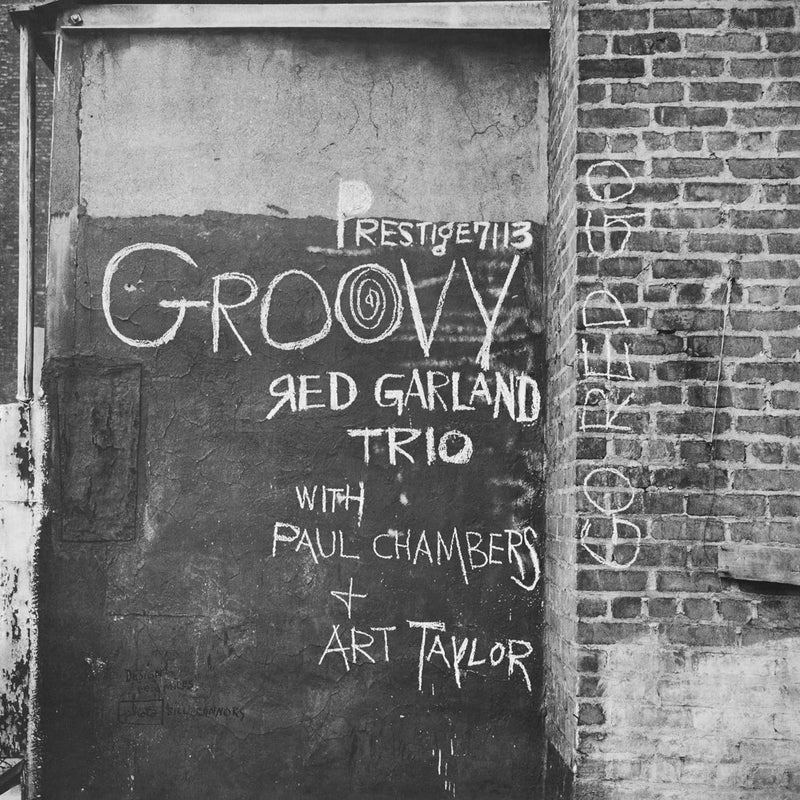 PRESTIGE 7113
GROOVY
RED GARLAND
TRIO
WITH
PAUL CHAMBERS
+
ART TAYLOR
GO RED GO
DESIGN
BILL CONNORS